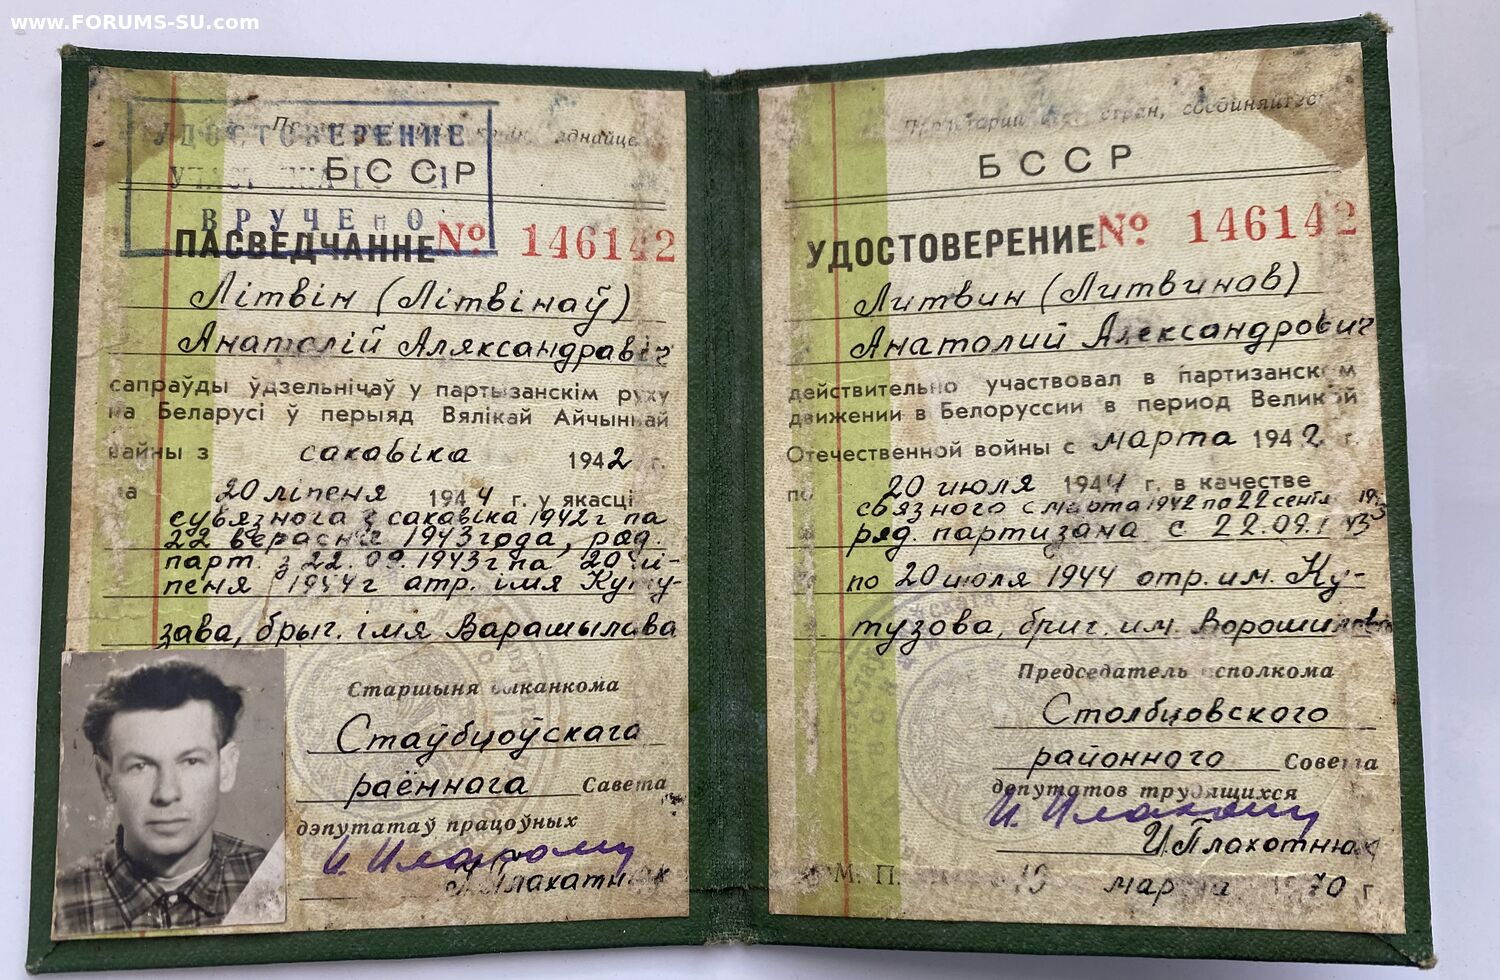 www.FORUMS-SU.com
УДОСТОВЕРЕНИЕ
ВРУЧЕНО
БССР
ПАСВЕДЧАННЕ № 146142
Літвін (Літвінаў)
Анатолій Аляксандравіч
сапраўды ўдзельнічаў у партызанскім руху
на Беларусі ў перыяд Вялікай Айчыннай
вайны з сакавіка 1942 г.
па 20 ліпеня 1944 г. у якасці
сувязнога з сакавіка 1942 г па
22 верасня 1943 года, рад.
парт. з 22.09.1943 г па 20 лі-
пеня 1944 г атр. імя Куту-
зава, брыг. імя Варашылава
Старшыня выканкома
Стаўбцоўскага
раённага Савета
дэпутатаў працоўных
Плахатнюк
Пролетарии всех стран, соединяйтесь
БССР
УДОСТОВЕРЕНИЕ № 146142
Литвин (Литвинов)
Анатолий Александрович
действительно участвовал в партизанском
движении в Белоруссии в период Великой
Отечественной войны с марта 1942 г.
по 20 июля 1944 г. в качестве
связного с марта 1942 по 22 сент 1943
ряд. партизана с 22.09.1943
по 20 июля 1944 отр. им. Ку-
тузова, бриг. им. Ворошилова
Председатель исполкома
Столбцовского
районного Совета
депутатов трудящихся
И Плахотнюк
М. П. 19 марта 1970 г